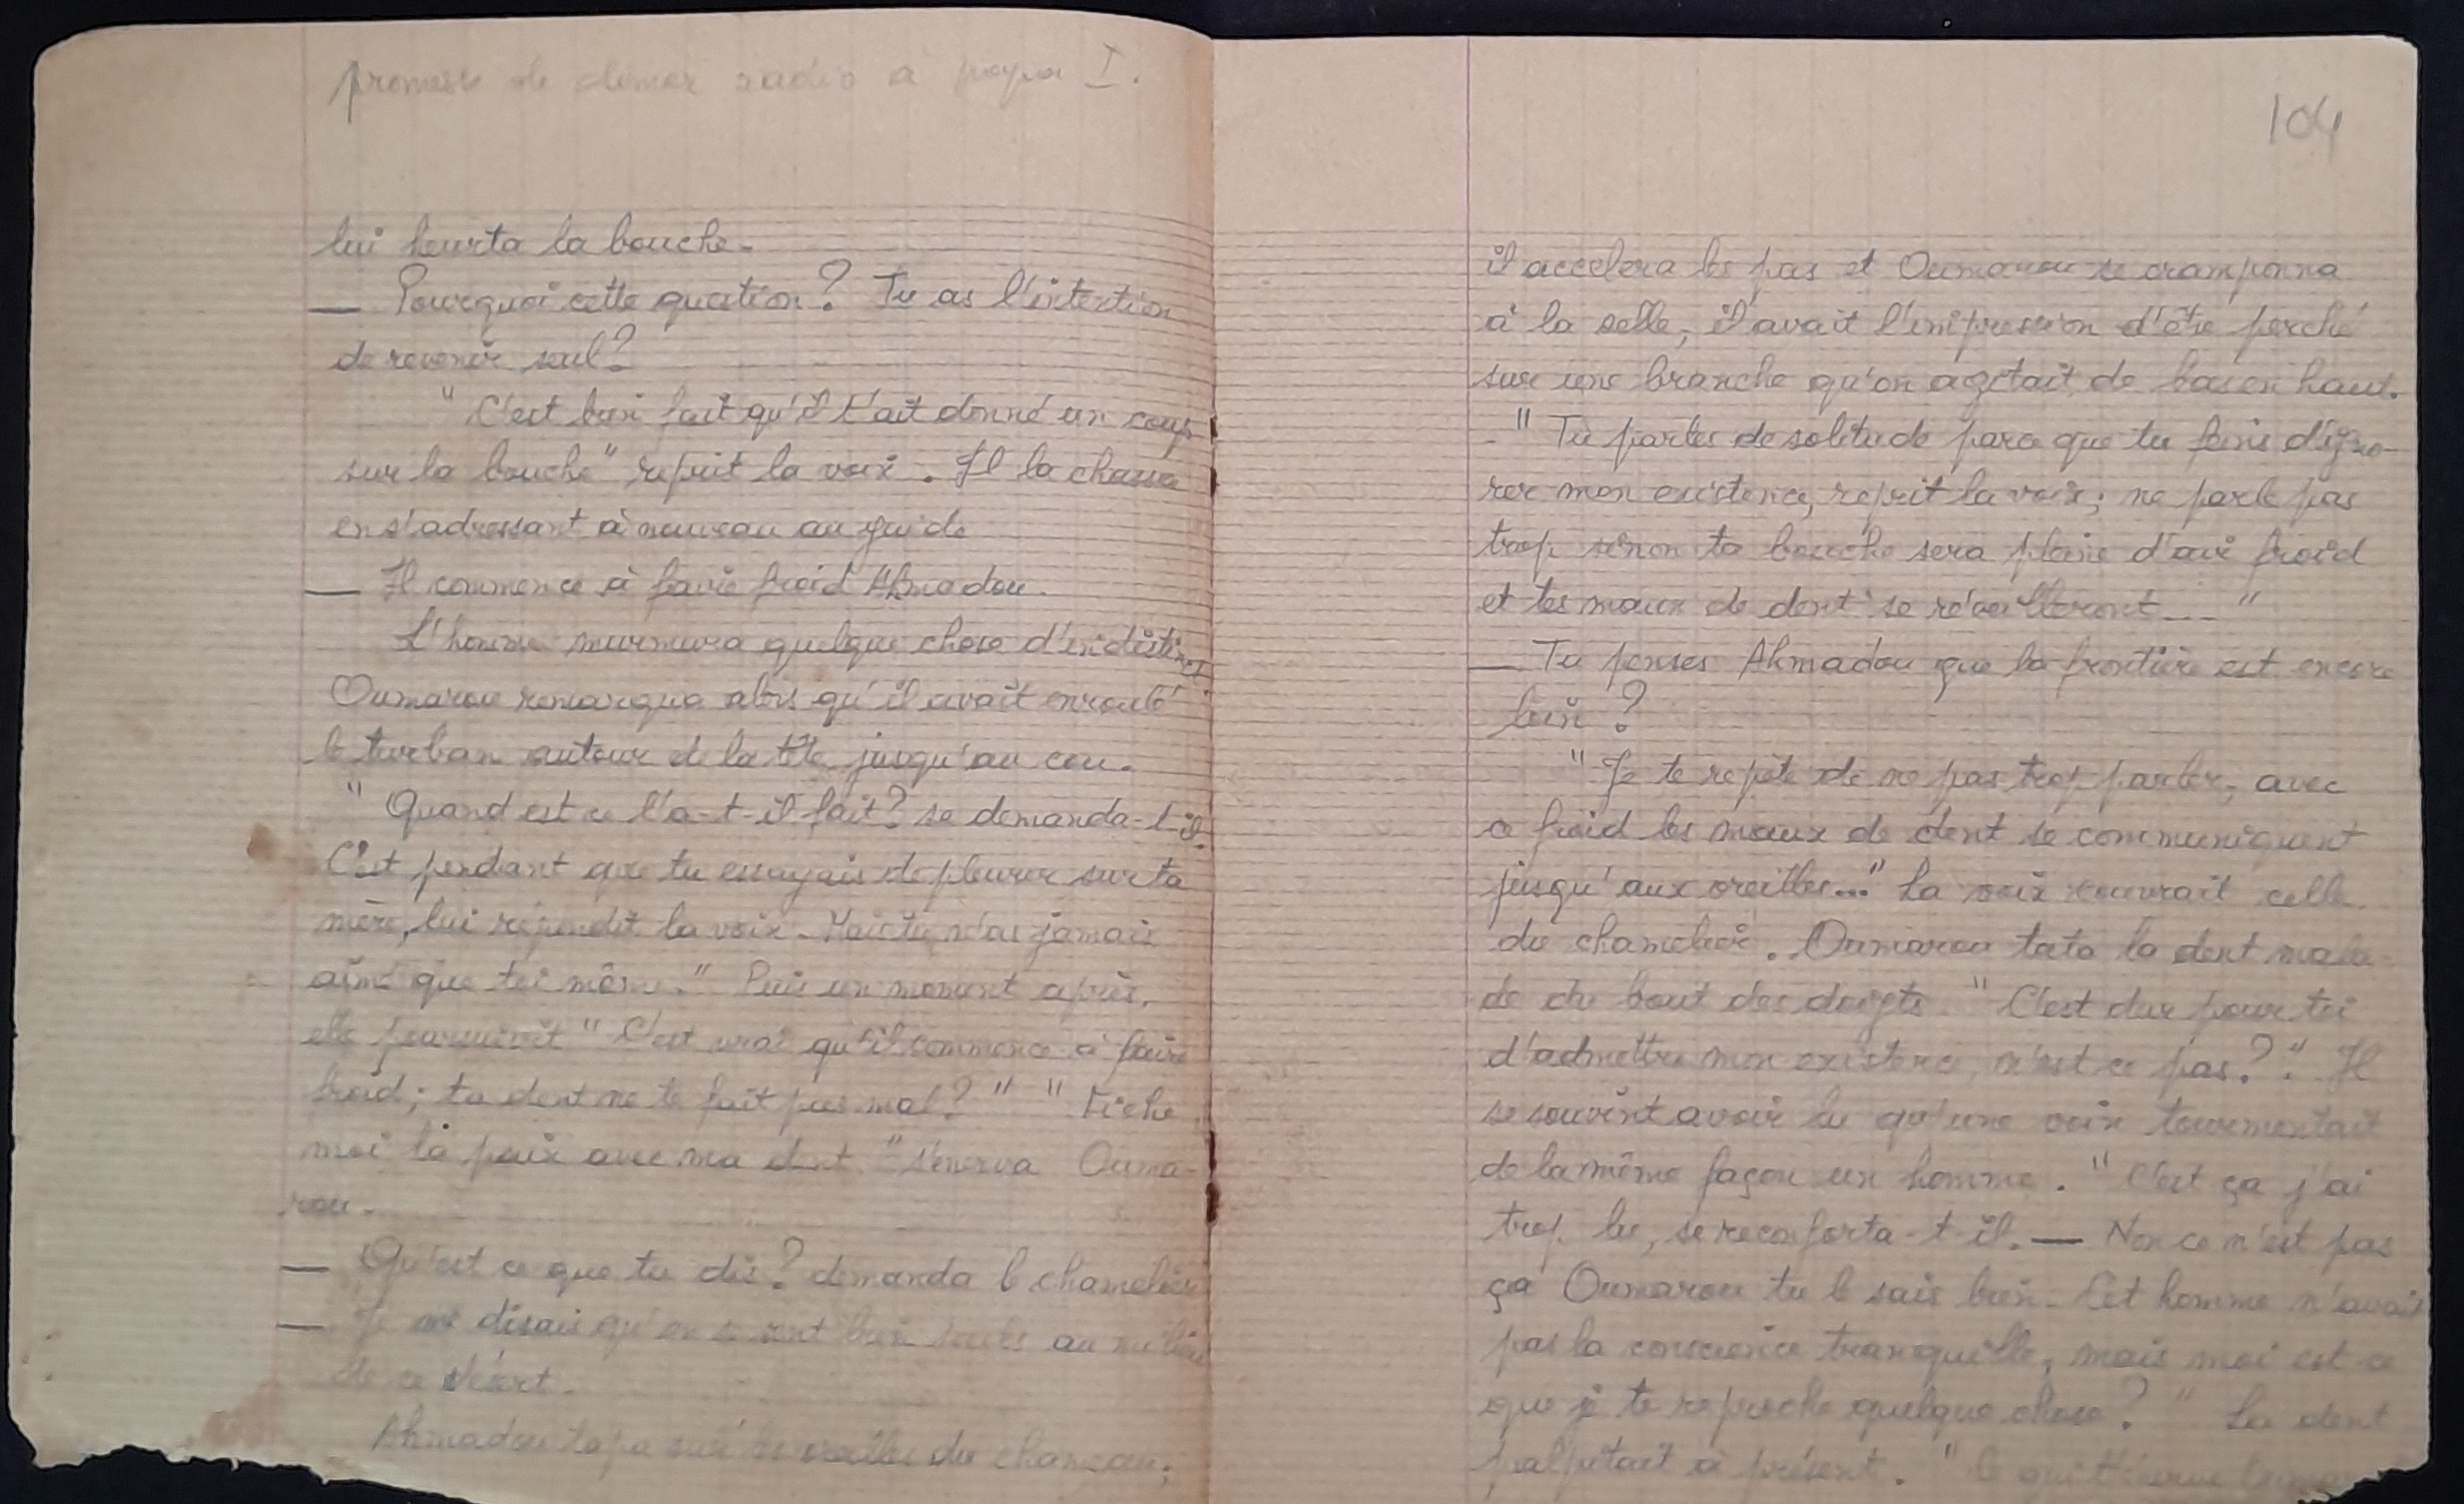 promesse de donner radio à papa I.
lui heurta la bouche.
— Pourquoi cette question? Tu as l'intention
de revenir seul?
" C'est bien fait qu'il t'ait donné un coup
sur la bouche" reprit la voix. Il la chassa
en s'adressant à nouveau au guide
— Il commence à faire froid Ahmadou.
L'homme murmura quelque chose d'indistinct
Oumarou remarqua alors qu'il avait enroulé
le turban autour de la tête jusqu'au cou.
" Quand est ce l'a-t-il fait? se demanda-t-il.
C'est pendant que tu essayais de pleurer sur ta
mère, lui répondit la voix. Mais tu n'as jamais
aimé que toi même." Puis un moment après,
elle poursuivit " C'est vrai qu'il commence à faire
froid; ta dent ne te fait pas mal?" " Fiche
moi la paix avec ma dent." s'enerva Ouma-
rou.
— Qu'est ce que tu dis? demanda le chamelier
— Je me disais qu'on est bien seuls au milieu
de ce désert.
Ahmadou tapa sur les oreilles du chameau;
104
il accelera les pas et Oumarou se cramponna
à la selle, il avait l'impression d'être perché
sur une branche qu'on agitait de bas en haut.
-" Tu parles de solitude parce que tu feins d'igno-
rer mon existence, reprit la voix; ne parle pas
trop sinon ta bouche sera pleine d'air froid
et tes maux de dent se réveilleront... "
— Tu penses Ahmadou que la frontière est encore
loin ?
" Je te repète de ne pas trop parler, avec
ce froid les maux de dent se communiquent
jusqu'aux oreilles..." La voix couvrait celle
du chamelier. Oumarou tata la dent mala-
de du bout des doigts. " C'est dur pour toi
d'admettre mon existence, n'est ce pas?". Il
se souvint avoir lu qu'une voix tourmentait
de la même façon un homme. " C'est ça j'ai
trop lu, se reconforta-t-il. — Non ce n'est pas
ça Oumarou tu le sais bien. Cet homme n'avait
pas la conscience tranquille, mais moi est ce
que je te reproche quelque chose? " La dent
palpitait à présent. " Ce qui t'énerve